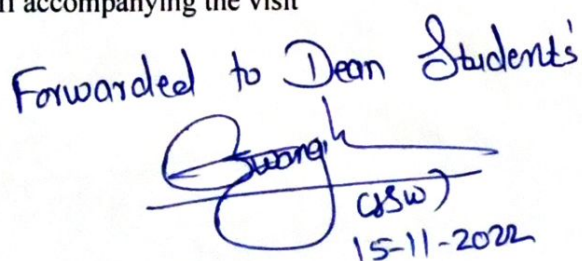 accompanying the visit
Forwarded to Dean Students'
15-11-2022